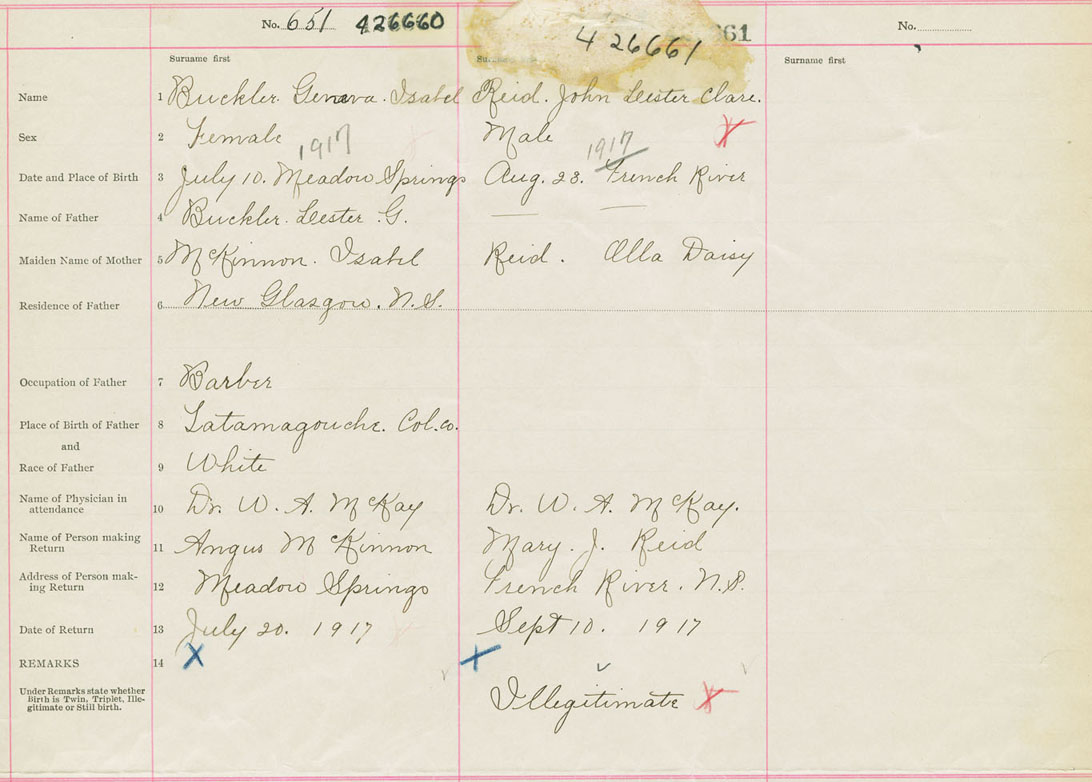 No. 651 426660 4 26661 61 No.
Surname first Surname first
Name 1 Buckler. Geneva. Isabel Reid. John Lester Clare.
Sex 2 Female Male X
1917 1917
Date and Place of Birth 3 July 10. Meadow Springs Aug. 23. French River
Name of Father 4 Buckler. Lester. G. — —
Maiden Name of Mother 5 McKinnon. Isabel Reid. Olla Daisy
Residence of Father 6 New Glasgow. N.S.
Occupation of Father 7 Barber
Place of Birth of Father 8 Tatamagouche. Col. Co.
and
Race of Father 9 White
Name of Physician in
attendance 10 Dr. W. A. McKay Dr. W. A. McKay.
Name of Person making
Return 11 Angus McKinnon Mary. J. Reid
Address of Person mak-
ing Return 12 Meadow Springs French River. N.S.
Date of Return 13 July 20. 1917 Sept 10. 1917
REMARKS 14 X X
Under Remarks state whether
Birth is Twin, Triplet, Ille-
gitimate or Still birth. Illegitimate X